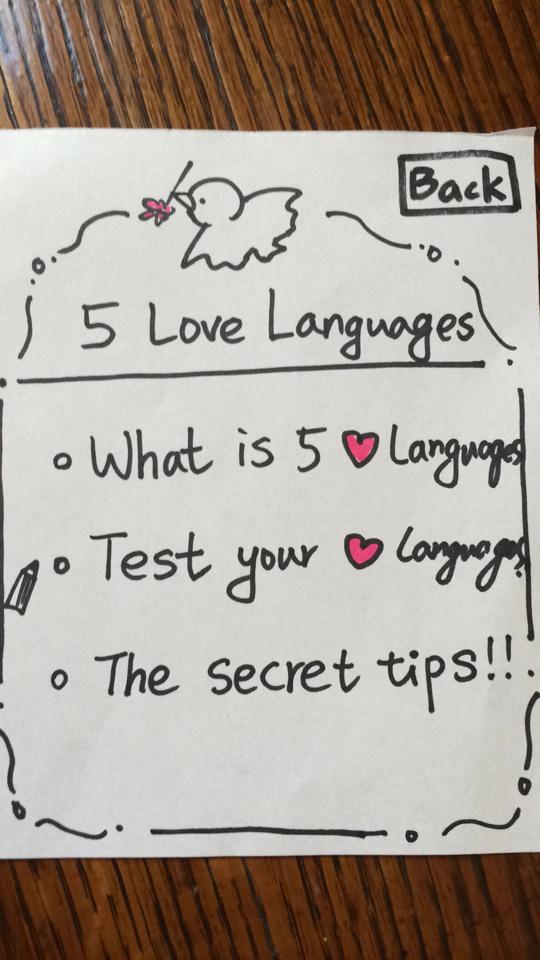 Back
5 Love Languages
What is 5 ♥ Languages
Test your ♥ Languages
The secret tips!!